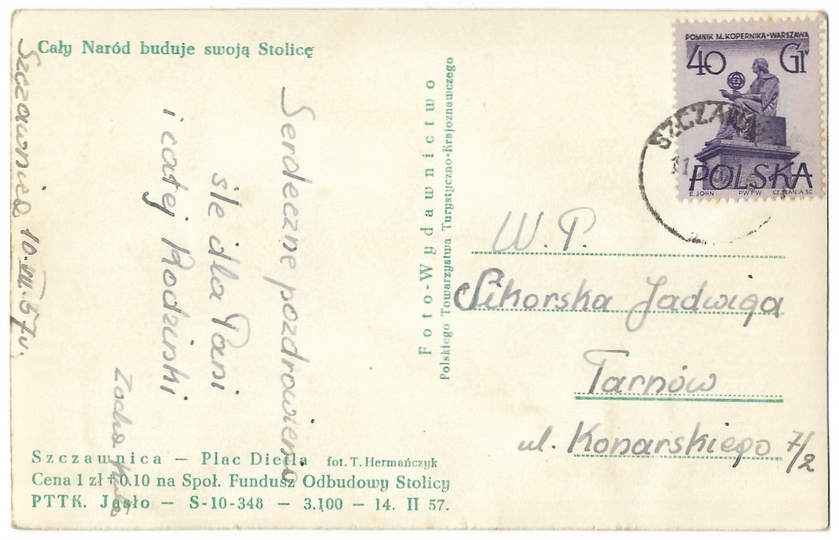 Cały Naród buduje swoją Stolicę
Szczawnica 10.VIII.57r.
Serdeczne pozdrowienia
śle dla Pani
i całej Rodzinki
Zocha
Foto-Wydawnictwo
Polskiego Towarzystwa Turystyczno-Krajoznawczego
POMNIK M. KOPERNIKA•WARSZAWA
40 Gr
POLSKA
E. JOHN PWPW
SZCZAWN
11
W. P.
Sikorska Jadwiga
Tarnów
ul. Konarskiego 7/2
Szczawnica — Plac Dietla fot. T. Hermańczyk
Cena 1 zł + 0.10 na Społ. Fundusz Odbudowy Stolicy
PTTK. Jasło — S-10-348 — 3.100 — 14. II 57.